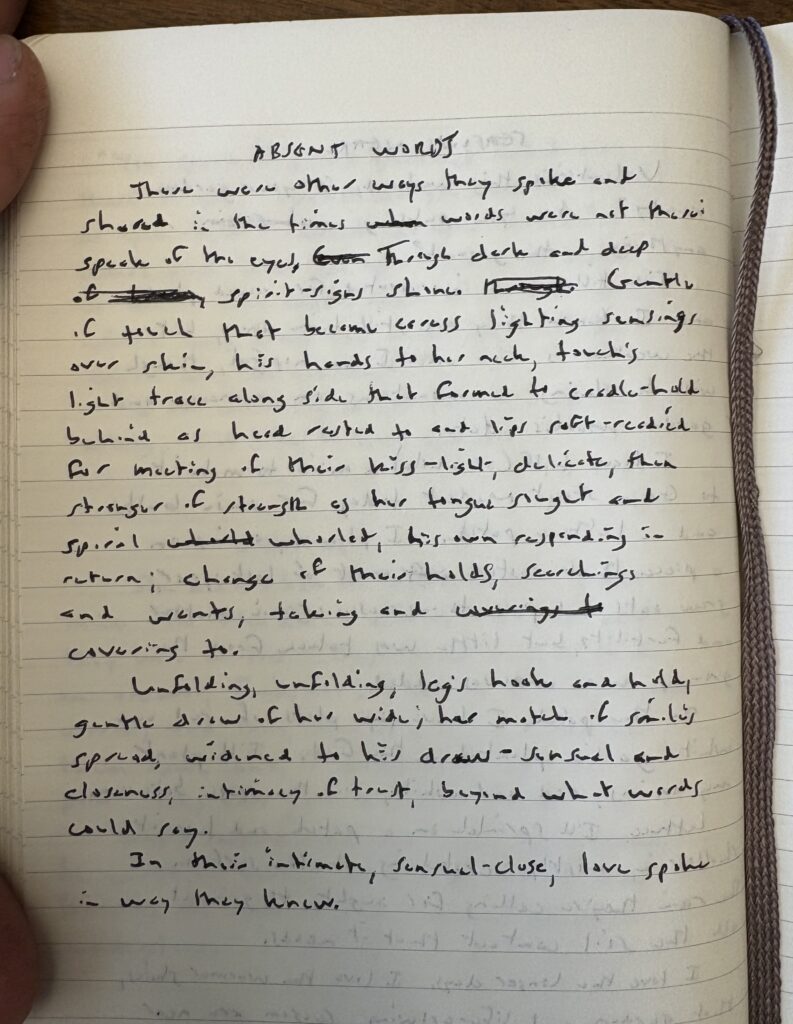 ABSENT WORDS
There were other ways they spoke and
shared in the times when words were not there;
speak of the eyes, Even Through dark and deep
of spirit-signs shone. Through Gentle
of touch that become caress, lighting sensings
over skin, his hands to her neck, touch's
light trace along side that formed to cradle-hold
behind as head rested to and lips soft-readied
for meeting of their kiss-light, delicate, then
stronger of strength as her tongue sought and
spiral whorled, his own responding in
return; change of their holds, searchings
and wants, taking and coverings to
covering to.
Unfolding, unfolding, legs hook and hold,
gentle draw of her wide; her match of smile's
spread, widened to his draw - sensual and
closeness, intimacy of trust, beyond what words
could say.
In their intimate, sensual-close, love spoke
in way they knew.